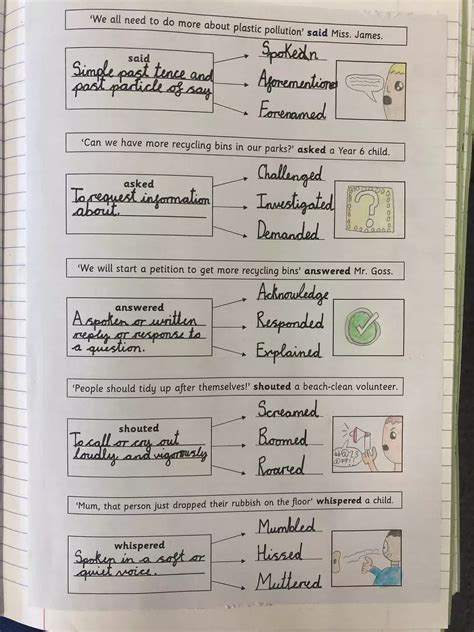 'We all need to do more about plastic pollution' said Miss. James.
said
Simple past tence and
past particle of say
Spokedn
Aforementioned
Forenamed
'Can we have more recycling bins in our parks?' asked a Year 6 child.
asked
To request information
about.
Challenged
Investigated
Demanded
?
'We will start a petition to get more recycling bins' answered Mr. Goss.
answered
A spoken or written
reply or response to
a question.
Acknowledge
Responded
Explained
'People should tidy up after themselves!' shouted a beach-clean volunteer.
shouted
To call or cry out
loudly and vigorously
Screamed
Boomed
Roared
'Mum, that person just dropped their rubbish on the floor' whispered a child.
whispered
Spoken in a soft or
quiet voice.
Mumbled
Hissed
Muttered